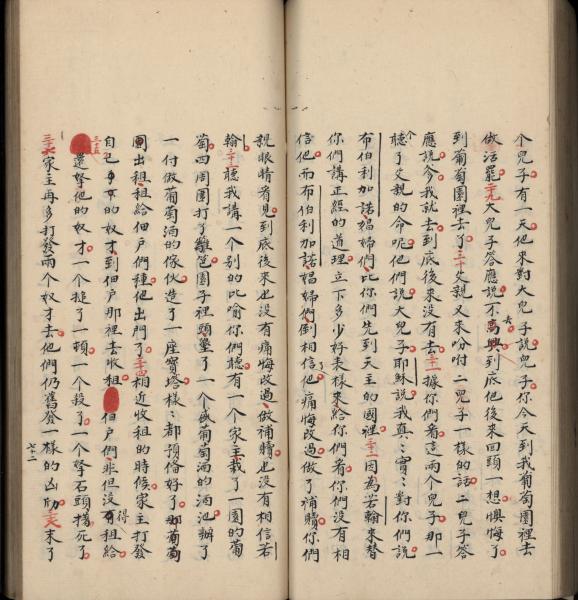 个兒子有一天他來對大兒子說兒子你今天到我葡萄園裡去
做活罷二十九大兒子答應說不高興去到底他後來回頭一想懊悔了
到葡萄園裡去了三十父親又來吩咐二兒子一樣的話二兒子答
應說今我就去到底後來没有去三十一據你們看這兩个兒子那一
个聽了父親的命呢他們說大兒子耶穌說我真真實實對你們說
布伯利加諾娼婦們比你們先到天主的國裡三十二因為若翰來替
你們講正經的道理立下多少好表樣來給你們看你們没有相
信他而布伯利加諾娼婦們倒相信了他痛悔改過做了補贖你們
親眼睛看見到底後來也没有痛悔改過做補贖也没有相信若
翰三十三聽我講一个别的比喻你們聽有一个家主栽了一園的葡
萄四周圍打了籬笆園子裡頭壘了一个盛葡萄酒的酒池辦了
一付做葡萄酒的傢伙造了一座寳塔樣樣都預偹好了那葡萄
園出租租給佃戶們種他出門了三十四相近收租的時候家主打發
自己的奴才到佃戶那裡去收租三十五佃戶們非但没有得租給
還拏他的奴才一个搥了一頓一个殺了一个拏石頭擲死了
三十六家主再多打發兩个奴才去他們仍舊發一樣的凶形三十七末了
七十二